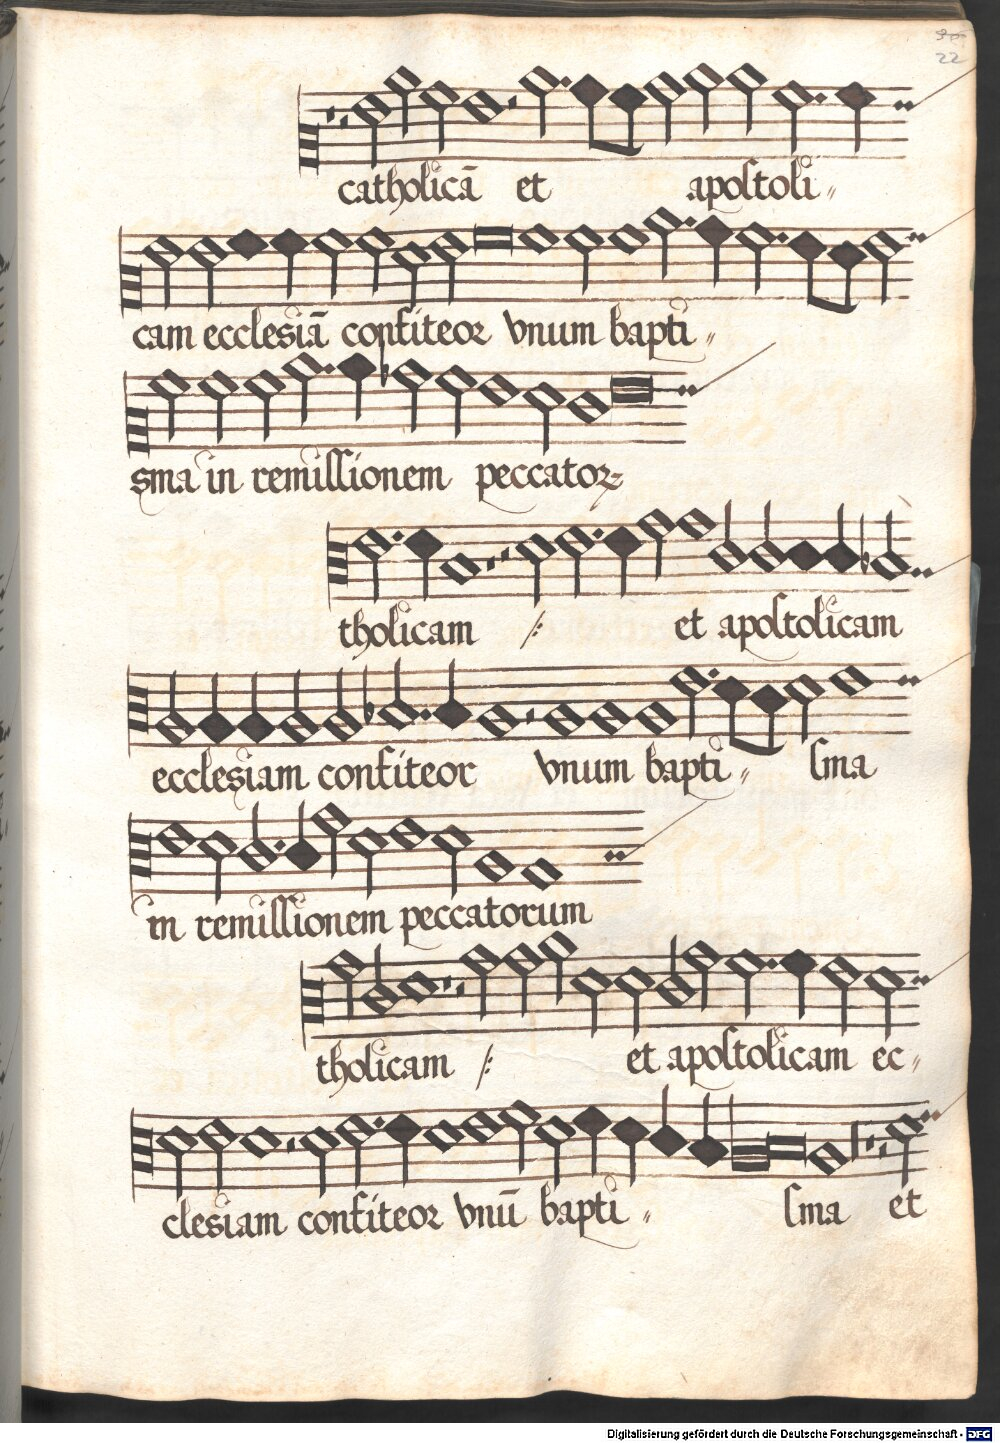 22
catholicā et apostoli〃
cam ecclesiā confiteor vnum bapti〃
sma in remissionem peccator
tholicam /: et apostolicam
ecclesiam confiteor vnum bapti〃 sma
in remissionem peccatorum
tholicam /: et apostolicam ec〃
clesiam confiteor vnū bapti〃 sma et
Digitalisierung gefördert durch die Deutsche Forschungsgemeinschaft - DFG